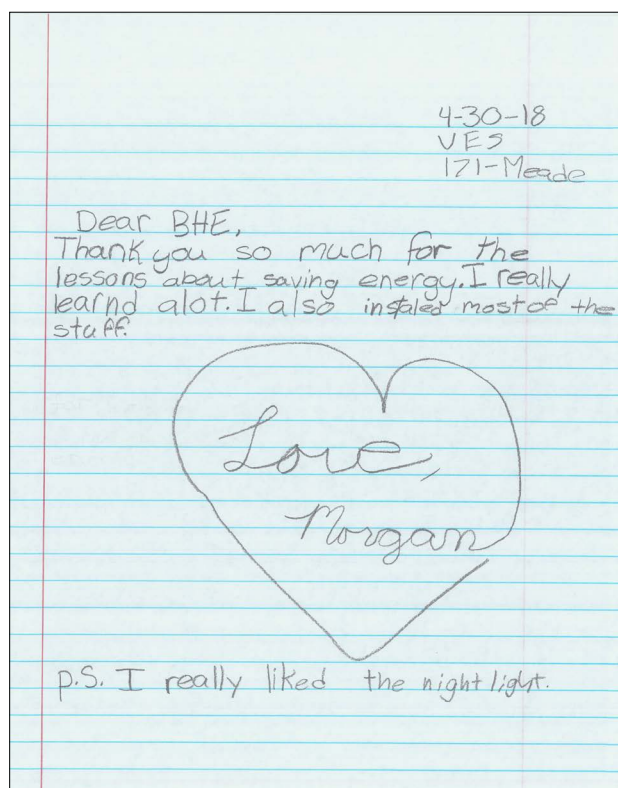 4-30-18
VES
171-Meade
Dear BHE,
Thank you so much for the
lessons about saving energy. I really
learnd alot. I also instaled most of the
stuff.
Love,
Morgan
p.S. I really liked the night light.